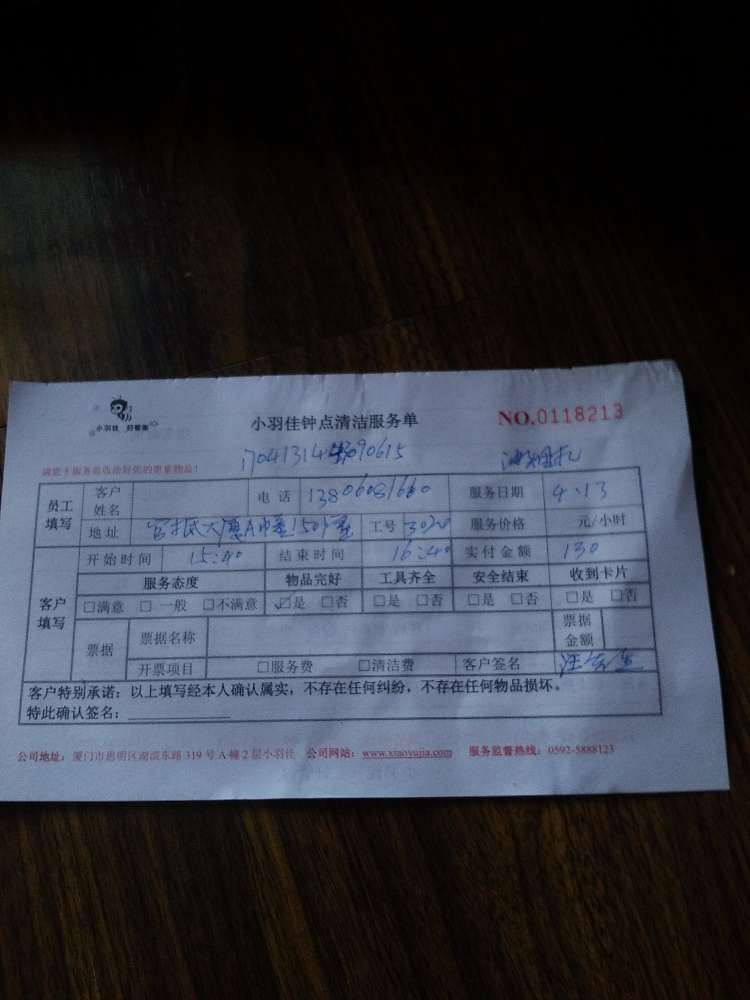 小羽佳 好管家
小羽佳钟点清洁服务单 NO.0118213
请您于服务前收拾好您的贵重物品!
员工填写 客户姓名 电话 服务日期 4.13
地址 工号 服务价格 元/小时
客户填写 开始时间 15:40 结束时间 16:40 实付金额 130
服务态度 物品完好 工具齐全 安全结束 收到卡片
□满意 □一般 □不满意 ☑是 □否 □是 □否 □是 □否 □是 □否
票据 票据名称 票据金额
开票项目 □服务费 □清洁费 客户签名
客户特别承诺:以上填写经本人确认属实,不存在任何纠纷,不存在任何物品损坏。
特此确认签名:
公司地址:厦门市思明区湖滨东路 319 号 A 幢 2 层小羽佳 公司网站:www.xiaoyujia.com 服务监督热线:0592-5888123